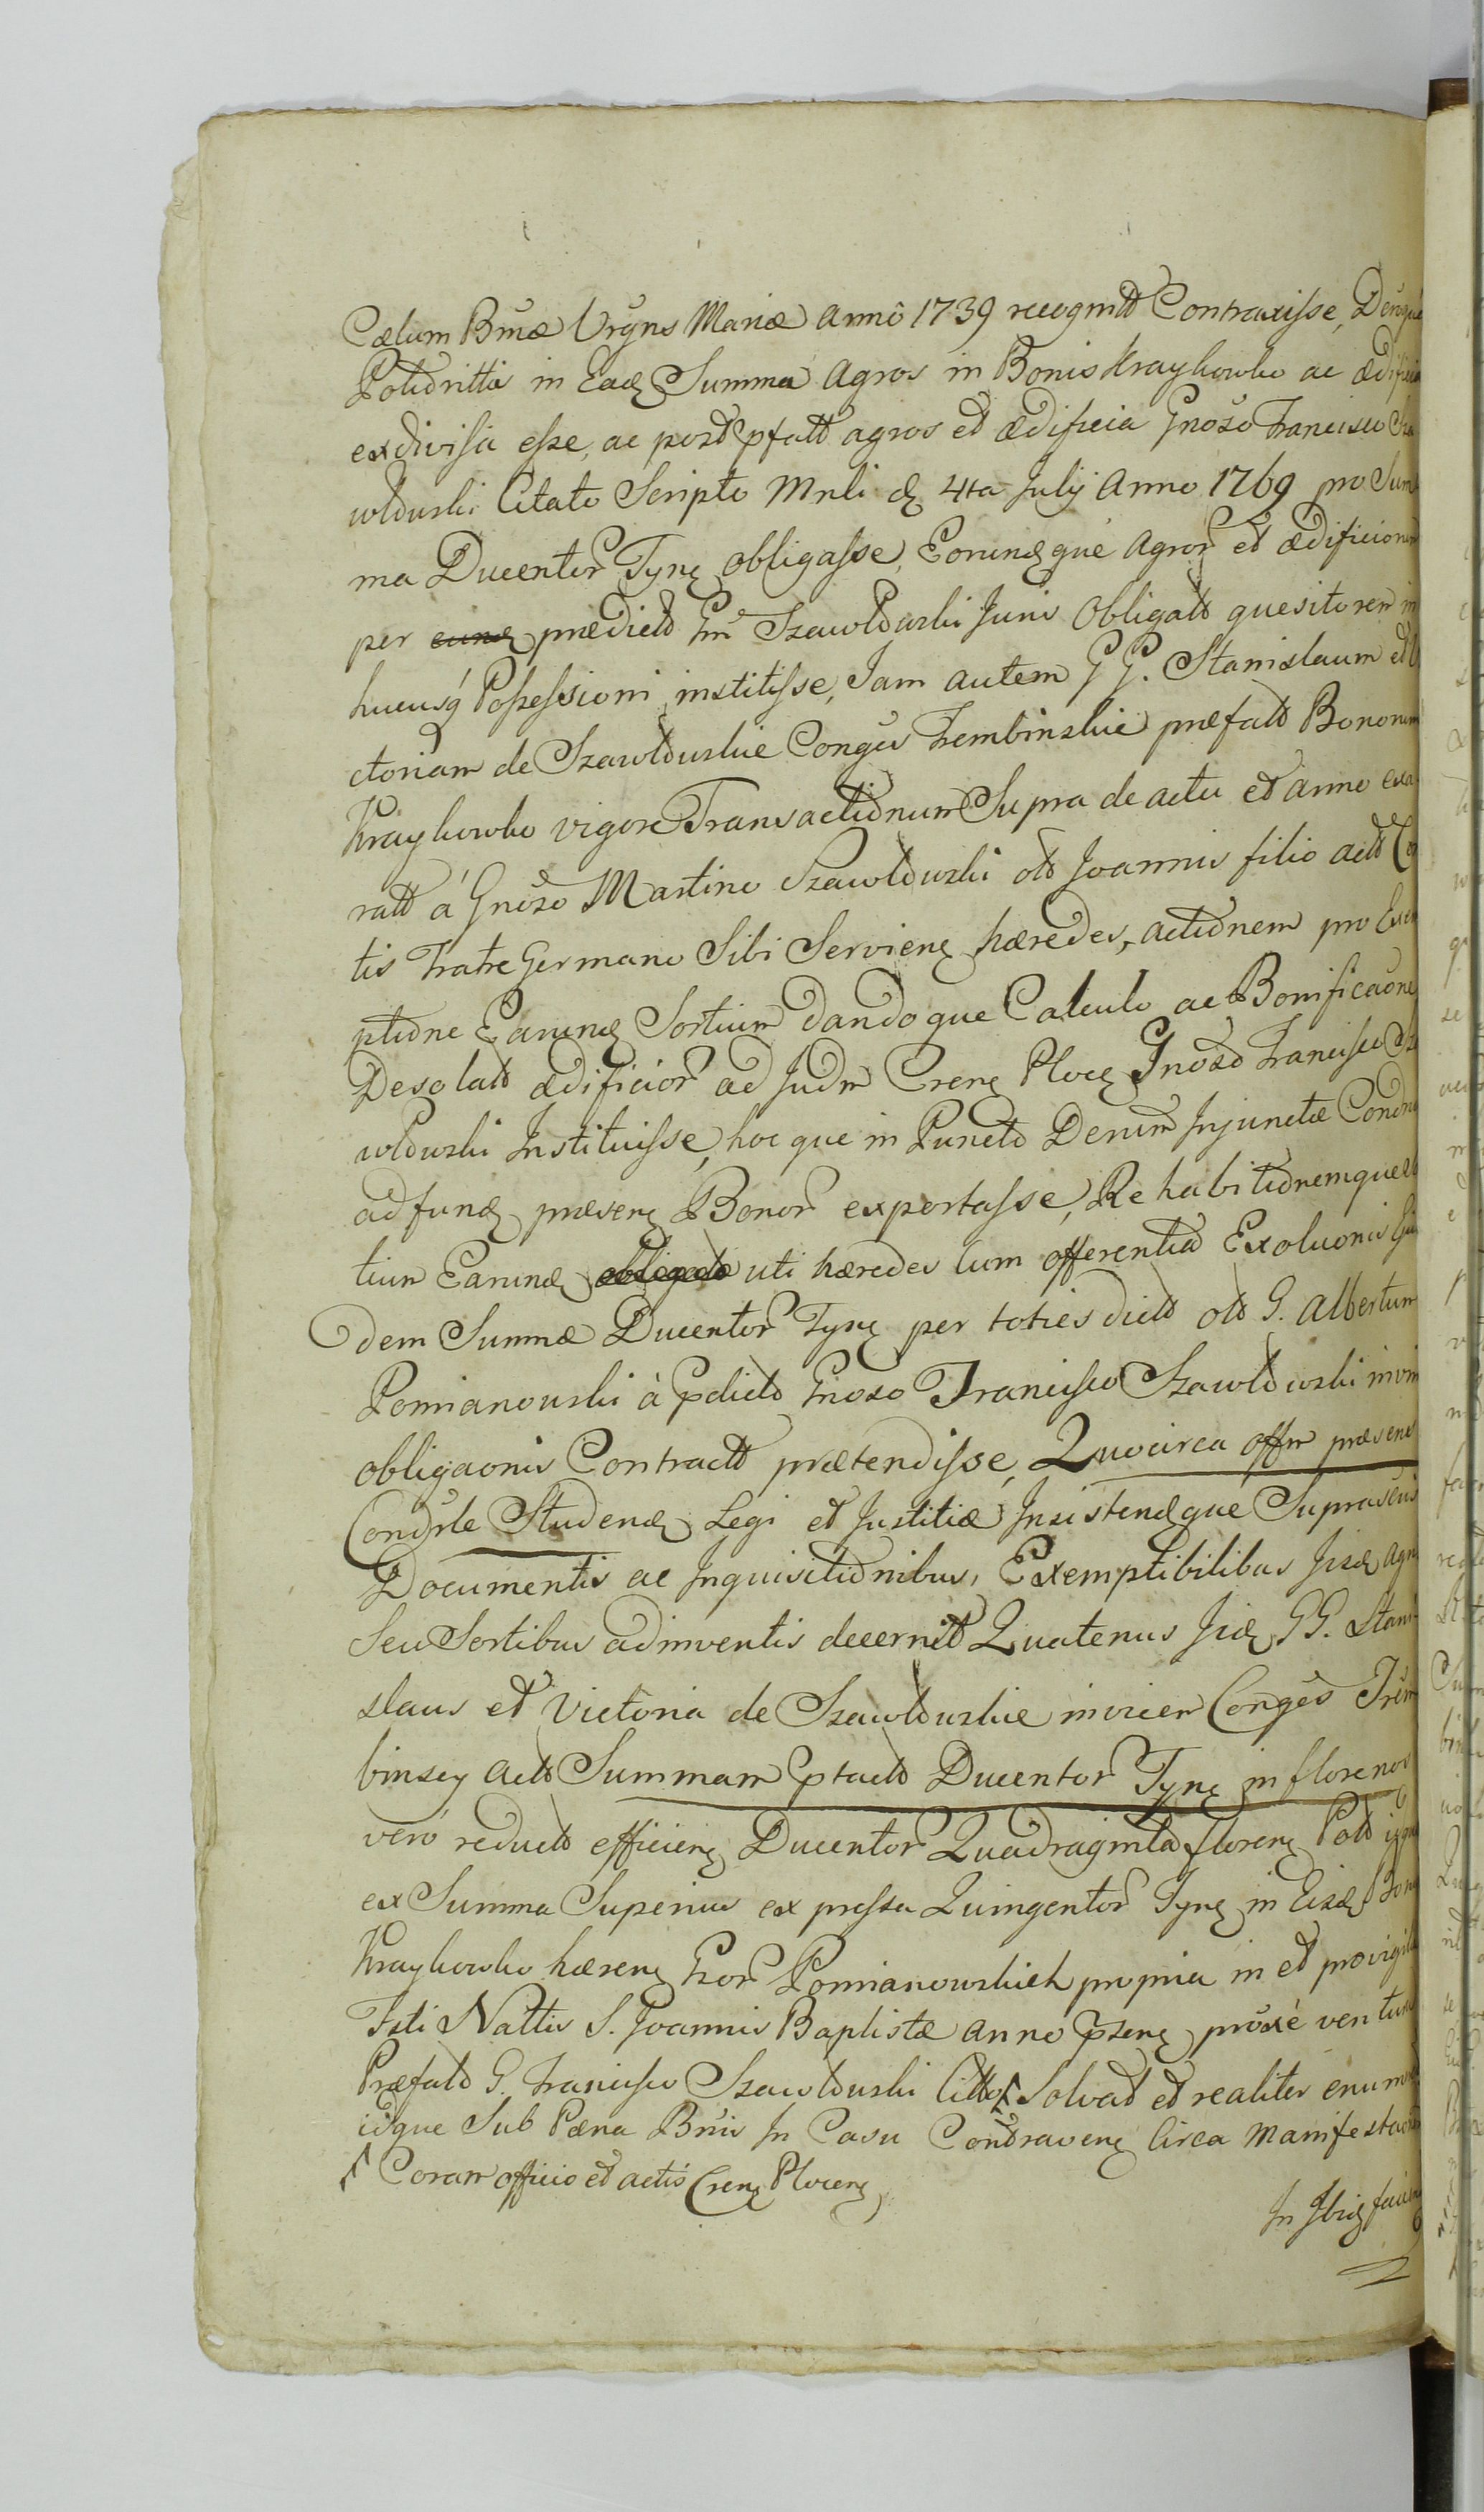 Cælum Bmæ Vrgns Mariæ Annô 1739 recognitt Contraxisse, Denique
in Eadę Summa Agros in Bonis Kraykowko ac ædificia
exdivisa esse, ac post pfatt agros et ædificia Gnoso Francisco Sza
włowski Citato Scripto Mnli dę 4ta Julij Anno 1769 pro Sum
ma Ducentor Tynę obligasse, Eorundęque Agror et ædificiorum
per eundę prædict Gm Szawłowski Juris Obligatt quesitorem in
hucusq Possessioni institisse, Jam autem G G. Stanislaum et Vi
ctoriam de Szawłowskie Conges Trembinskie præfatt Bonorum
Kraykowko vigore Transactionum Supra de actu et anno exa
ratt á Gnoso Martino Szawłowski olt Joannis filio actt
tis Fratre Germano Sibi Servienę hæredes, actionem pro Exem
ptione Earundę Sortium dando que Calculo ac Bonificaone
Desolatt ædificior ad Judm Crenę Plocę Gnoso Francisco Sza
włowski Instituisse, hoc que in Puncto Denum Injunctæ Condne
ad fundę præsenę Bonor exportasse, Rehabitionemque
tium Earundę obligatt uti hæredes cum offerentia Exoluonis Ejus
dem Summæ Ducentor Tynę per toties dictt olt G. Albertum
Pomianowski à pdicto Gnoso Francisco Szawłowski in vim
obligaonis Contractt prætendisse, Quocirca offm præsens
Condrle Studendę Legi et Justitiæ Insistendęque Suprascis
Documentis ac Inquisitionibus, Exemptibilibus Jisdę Agris
Seu Sortibus adinventis decernit Quatenus Jidę GG. Stani
slaus et Victoria de Szawłowskie invicem Conges Trem
binscy actt Summam ptactt Ducentor Tynę in florenos
verò reductt efficienę Ducentor Quadraginta florenę Polt
ex Summa Superius expressa Quingentor Tynę in Eisdę Bonis
Kraykowko hærenę Gror Pomianowskich propria in et pro vigilia
Fsti Nattis S. Joannis Baptistæ Anno psenę próxè ventura
Præfatt G. Francisco Szawłowski Citto Solvat et realiter enumeret
idque Sub Pæna Bnis In Casu Contravenę Circa Manifestaone
Coram officio et actis Crenę Plocenę
In Ibidę faciend